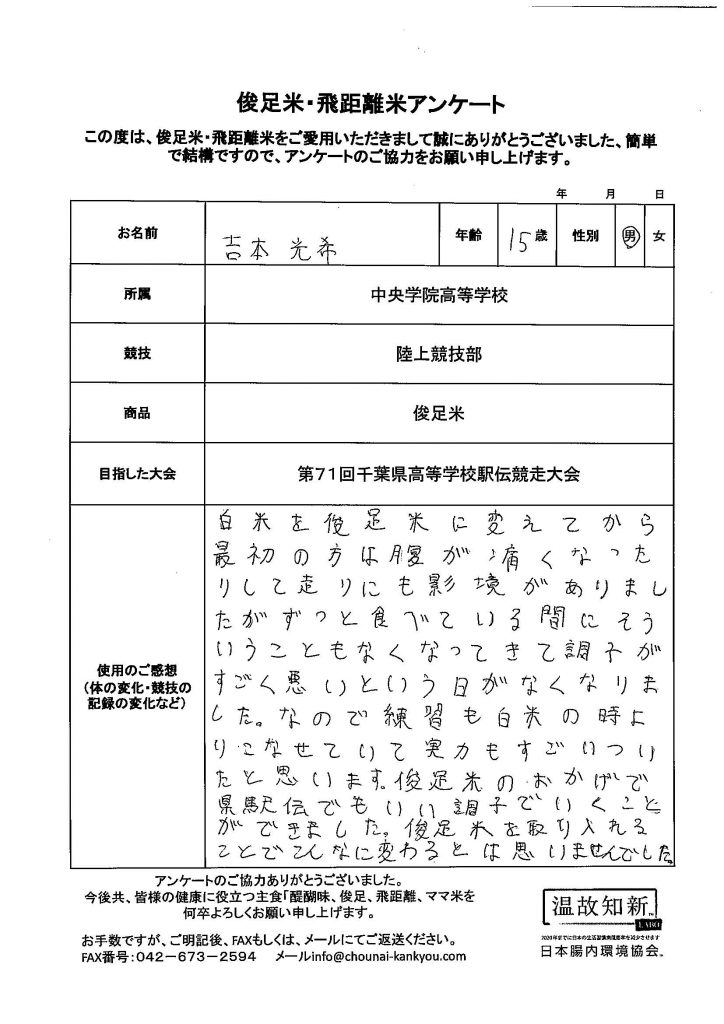 俊足米・飛距離米アンケート
この度は、俊足米・飛距離米をご愛用いただきまして誠にありがとうございました、簡単
で結構ですので、アンケートのご協力をお願い申し上げます。
年 月 日
お名前 吉本 光希 年齢 15 歳 性別 男 女
所属 中央学院高等学校
競技 陸上競技部
商品 俊足米
目指した大会 第71回千葉県高等学校駅伝競走大会
使用のご感想
(体の変化・競技の
記録の変化など)
白米を俊足米に変えてから
最初の方は腹が痛くなった
りして走りにも影境がありまし
たがずっと食べている間にそう
いうこともなくなってきて調子が
すごく悪いという日がなくなりま
した。なので練習も白米の時よ
りこなせていて実力もすごいつい
たと思います。俊足米のおかげで
県駅伝でもいい調子でいくこと
ができました。俊足米を取り入れる
ことでこんなに変わるとは思いませんでした。
アンケートのご協力ありがとうございました。
今後共、皆様の健康に役立つ主食「醍醐味、俊足、飛距離、ママ米を
何卒よろしくお願い申し上げます。
お手数ですが、ご明記後、FAXもしくは、メールにてご返送ください。
FAX番号：042－673－2594 メールinfo@chounai-kankyou.com
温故知新™
LABO
2020年までに日本の生活習慣病罹患率を減少させます
日本腸内環境協会™